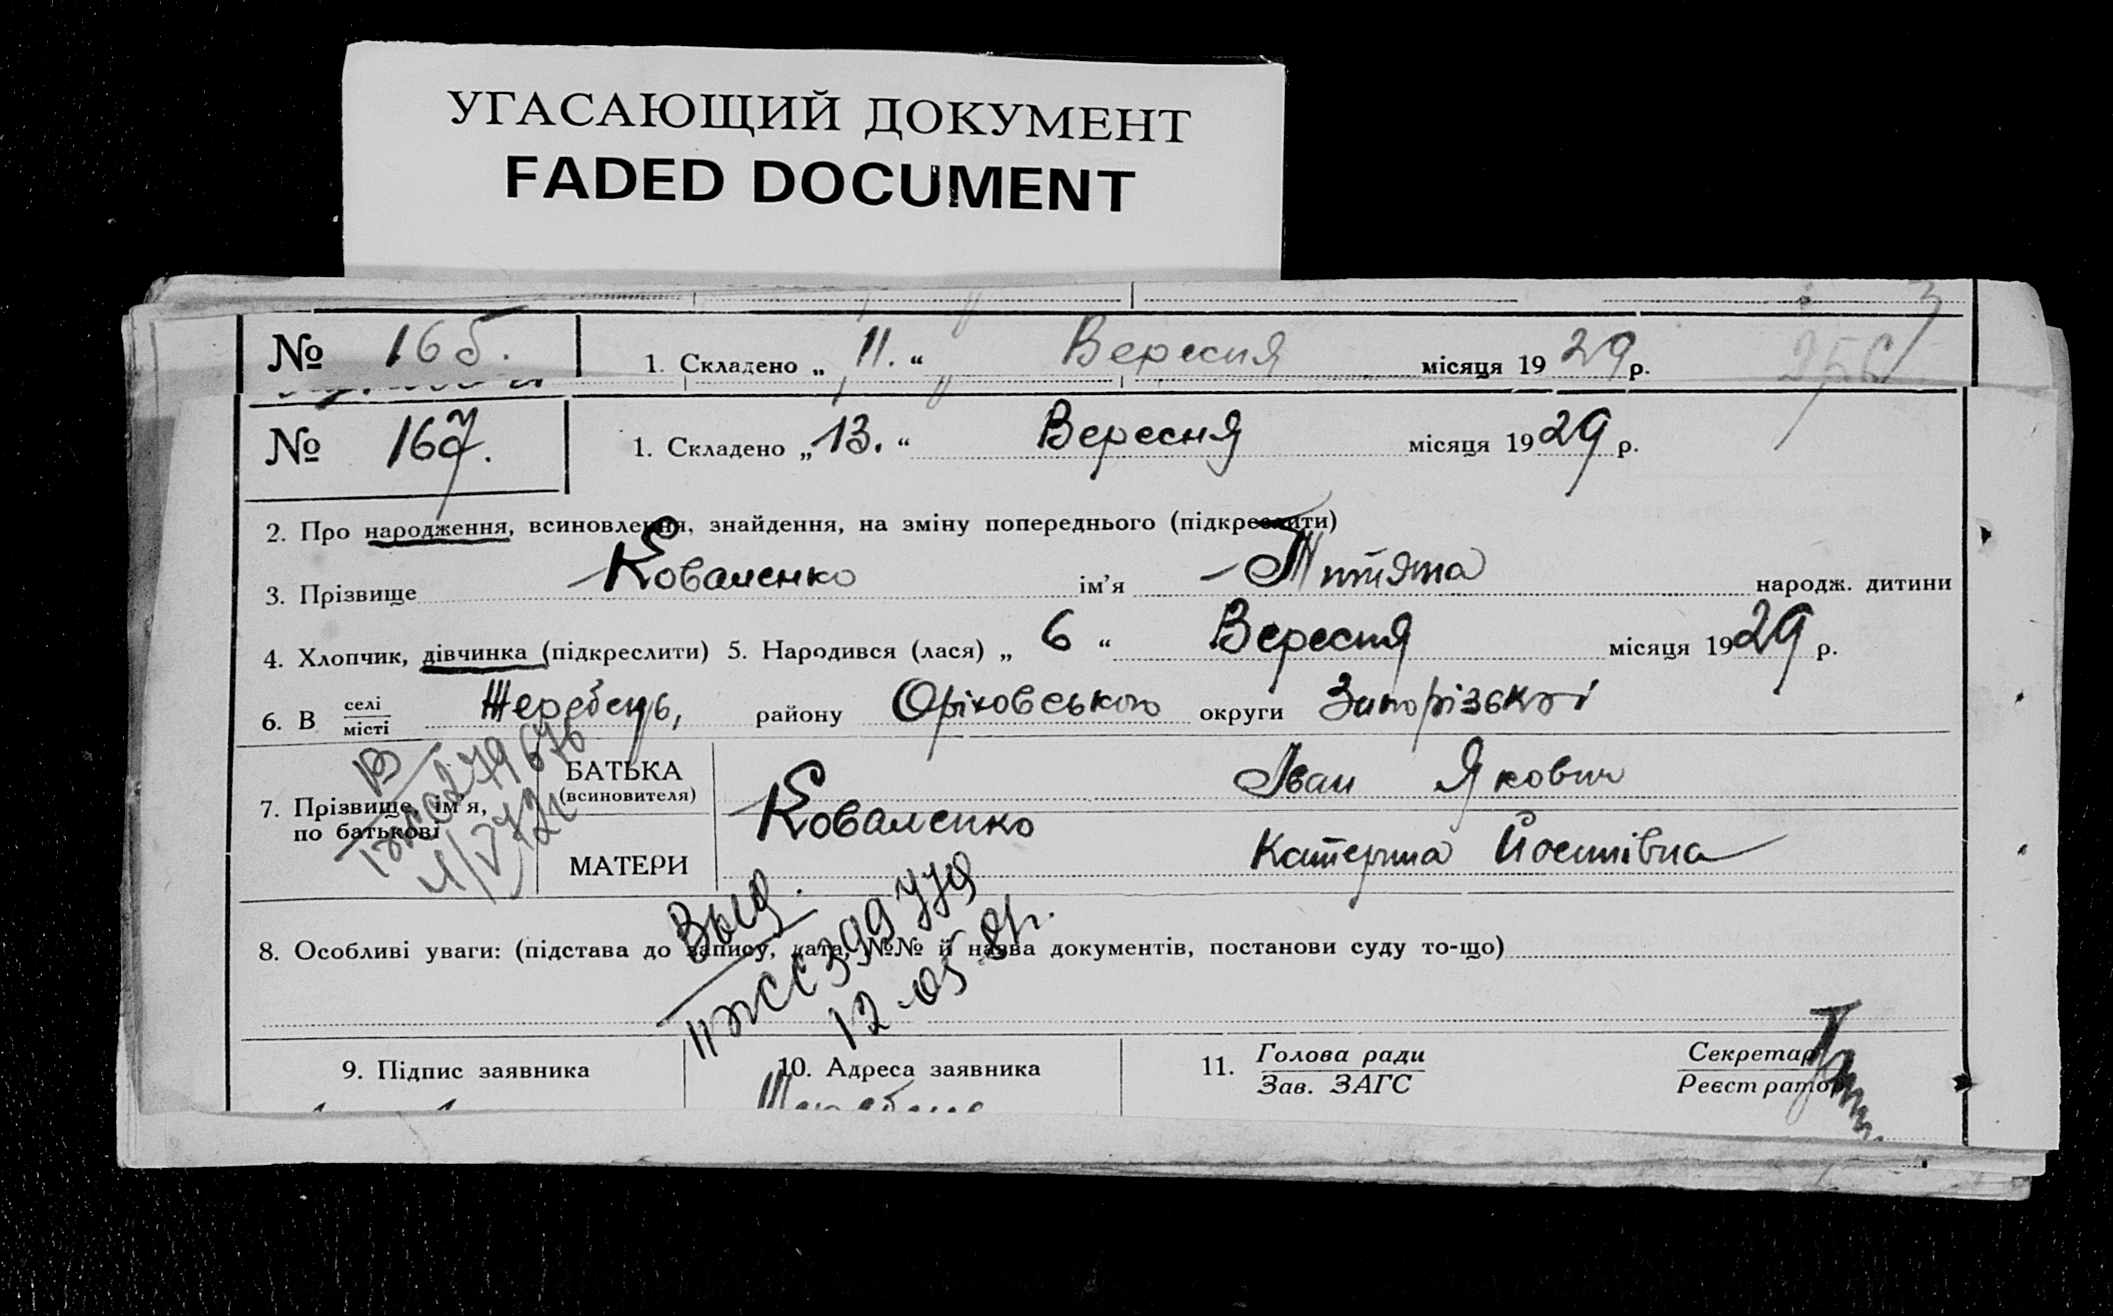 УГАСАЮЩИЙ ДОКУМЕНТ
FADED DOCUMENT
№ 165. 1. Складено „ 11. “ Вересня місяця 19 29 р.
№ 167. 1. Складено „ 13. “ Вересня місяця 19 29 р.
2. Про народження, всиновлення, знайдення, на зміну попереднього (підкреслити)
3. Прізвище Коваленко ім'я народж. дитини
4. Хлопчик, дівчинка (підкреслити) 5. Народився (лася) „ 6 “ Вересня місяця 19 29 р.
6. В селі Жеребець, району Оріховського округи Запорізької
місті
БАТЬКА Іван Якович
(всиновителя)
7. Прізвище, ім'я,
по батькові
Коваленко
МАТЕРИ Катерина Йосипівна
8. Особливі уваги: (підстава до запису, дата, №№ й назва документів, постанови суду то-що)
Выд.
9. Підпис заявника 10. Адреса заявника 11. Голова ради Секретар
Зав. ЗАГС Реєстратор